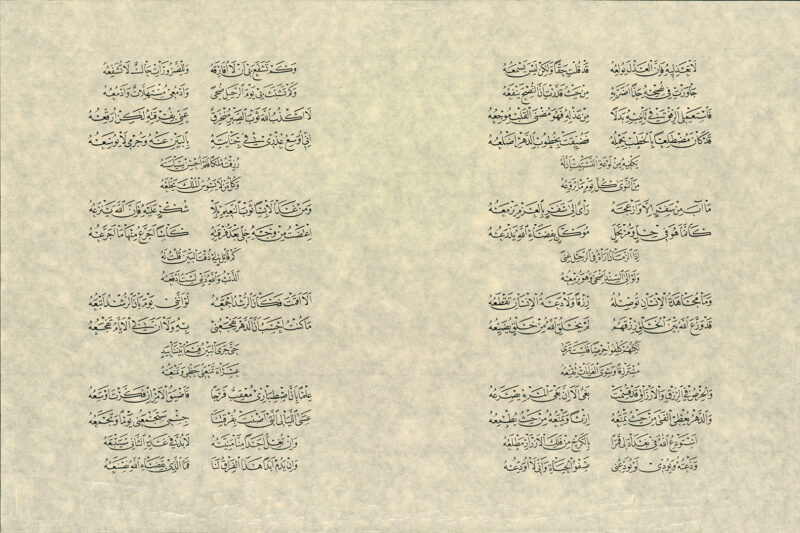 لَا تَعْذِلِيهِ فَإِنَّ الْعَذْلَ يُولِعُهُ قَدْ قُلْتِ حَقًّا وَلَكِنْ لَيْسَ يَسْمَعُهُ
جَاوَزْتِ فِي نُصْحِهِ حَدًّا أَضَرَّ بِهِ مِنْ حَيْثُ قَدَّرْتِ أَنَّ النُّصْحَ يَنْفَعُهُ
فَاسْتَعْمِلِي الرِّفْقَ فِي تَأْنِيبِهِ بَدَلًا مِنْ عَذْلِهِ فَهُوَ مُضْنَى الْقَلْبِ مُوجَعُهُ
قَدْ كَانَ مُضْطَلِعًا بِالْخَطْبِ يَحْمِلُهُ فَضُيِّقَتْ بِخُطُوبِ الدَّهْرِ أَضْلُعُهُ
يَكْفِيهِ مِنْ لَوْعَةِ التَّشْتِيتِ أَنَّ لَهُ
مِنَ النَّوَى كُلَّ يَوْمٍ مَا يُرَوِّعُهُ
مَا آبَ مِنْ سَفَرٍ إِلَّا وَأَزْعَجَهُ رَأْيٌ إِلَى سَفَرٍ بِالْعَزْمِ يَزْمَعُهُ
كَأَنَّمَا هُوَ فِي حِلٍّ وَمُرْتَحَلٍ مُوَكَّلٌ بِقَضَاءِ اللَّهِ يَذْرَعُهُ
إِذَا الزَّمَانُ أَرَاهُ فِي الرَّحِيلِ غِنًى
وَلَوْ إِلَى السِّنْدِ أَضْحَى وَهُوَ يَزْمَعُهُ
وَمَا مُجَاهَدَةُ الْإِنْسَانِ تُوصِلُهُ رِزْقًا وَلَا دَعَةُ الْإِنْسَانِ تَقْطَعُهُ
قَدْ وَزَّعَ اللَّهُ بَيْنَ الْخَلْقِ رِزْقَهُمُ لَمْ يَخْلُقِ اللَّهُ مِنْ خَلْقٍ يُضَيِّعُهُ
لَكِنَّهُمْ كُلِّفُوا حِرْصًا فَلَسْتَ تَرَى
مُسْتَرْزِقًا وَسِوَى الْغَايَاتِ تُقْنِعُهُ
وَالْحِرْصُ فِي الرِّزْقِ وَالْأَرْزَاقُ قَدْ قُسِمَتْ بَغْيٌ أَلَا إِنَّ بَغْيَ الْمَرْءِ يَصْرَعُهُ
وَالدَّهْرُ يُعْطِي الْفَتَى مِنْ حَيْثُ يَمْنَعُهُ إِرْثًا وَيَمْنَعُهُ مِنْ حَيْثُ يُطْمِعُهُ
أَسْتَوْدِعُ اللَّهَ فِي بَغْدَادَ لِي قَمَرًا بِالْكَرْخِ مِنْ فَلَكِ الْأَزْرَارِ مَطْلَعُهُ
وَدَّعْتُهُ وَبِوُدِّي لَوْ يُوَدِّعُنِي صَفْوُ الْحَيَاةِ وَأَنِّي لَا أُوَدِّعُهُ
وَكَمْ تَشَفَّعَ بِي أَنْ لَا أُفَارِقَهُ وَلِلضَّرُورَاتِ حَالٌ لَا تُشَفِّعُهُ
وَكَمْ تَشَبَّثَ بِي يَوْمَ الرَّحِيلِ ضُحًى وَأَدْمُعِي مُسْتَهِلَّاتٌ وَأَدْمُعُهُ
لَا أَكْذِبُ اللَّهَ ثَوْبُ الصَّبْرِ مُنْخَرِقٌ عَنِّي بِفُرْقَتِهِ لَكِنْ أُرَقِّعُهُ
إِنِّي أُوَسِّعُ عُذْرِي فِي جِنَايَتِهِ بِالْبَيْنِ عَنْهُ وَجُرْمِي لَا يُوَسِّعُهُ
رُزِقْتُ مُلْكًا فَلَمْ أُحْسِنْ سِيَاسَتَهُ
وَكُلُّ مَنْ لَا يَسُوسُ الْمُلْكَ يَخْلَعُهُ
وَمَنْ غَدَا لَابِسًا ثَوْبَ النَّعِيمِ بِلَا شُكْرٍ عَلَيْهِ فَإِنَّ اللَّهَ يَنْزِعُهُ
اعْتَضْتُ مِنْ وَجْهِ خِلِّي بَعْدَ فُرْقَتِهِ كَأْسًا أُجَرَّعُ مِنْهَا مَا أُجَرَّعُهُ
كَمْ قَائِلٍ لِي ذُقْتَ الْبَيْنَ قُلْتُ لَهُ
الذَّنْبُ وَاللَّهِ ذَنْبِي لَسْتُ أَدْفَعُهُ
أَلَا أَقَمْتَ فَكَانَ الرُّشْدُ أَجْمَعُهُ لَوْ أَنَّنِي يَوْمَ بَانَ الرُّشْدُ أَتْبَعُهُ
مَا كُنْتُ أَحْسَبُ أَنَّ الدَّهْرَ يَفْجَعُنِي بِهِ وَلَا أَنَّ بِي الْأَيَّامَ تَفْجَعُهُ
حَتَّى جَرَى الْبَيْنُ فِيمَا بَيْنَنَا بِيَدٍ
عَسْرَاءَ تَمْنَعُنِي حَظِّي وَتَمْنَعُهُ
عِلْمًا بِأَنَّ اصْطِبَارِي مُعْقِبٌ فَرَجًا فَأَضْيَقُ الْأَمْرِ إِنْ فَكَّرْتَ أَوْسَعُهُ
عَسَى اللَّيَالِي الَّتِي أَضْنَتْ بِفُرْقَتِنَا جِسْمِي سَتَجْمَعُنِي يَوْمًا وَتَجْمَعُهُ
وَإِنْ تَغُلْ أَحَدًا مِنَّا مَنِيَّتُهُ لَا بُدَّ فِي غَدِهِ الثَّانِي سَيَتْبَعُهُ
وَإِنْ يَدُمْ أَبَدًا هَذَا الْفِرَاقُ لَنَا فَمَا الَّذِي بِقَضَاءِ اللَّهِ نَصْنَعُهُ